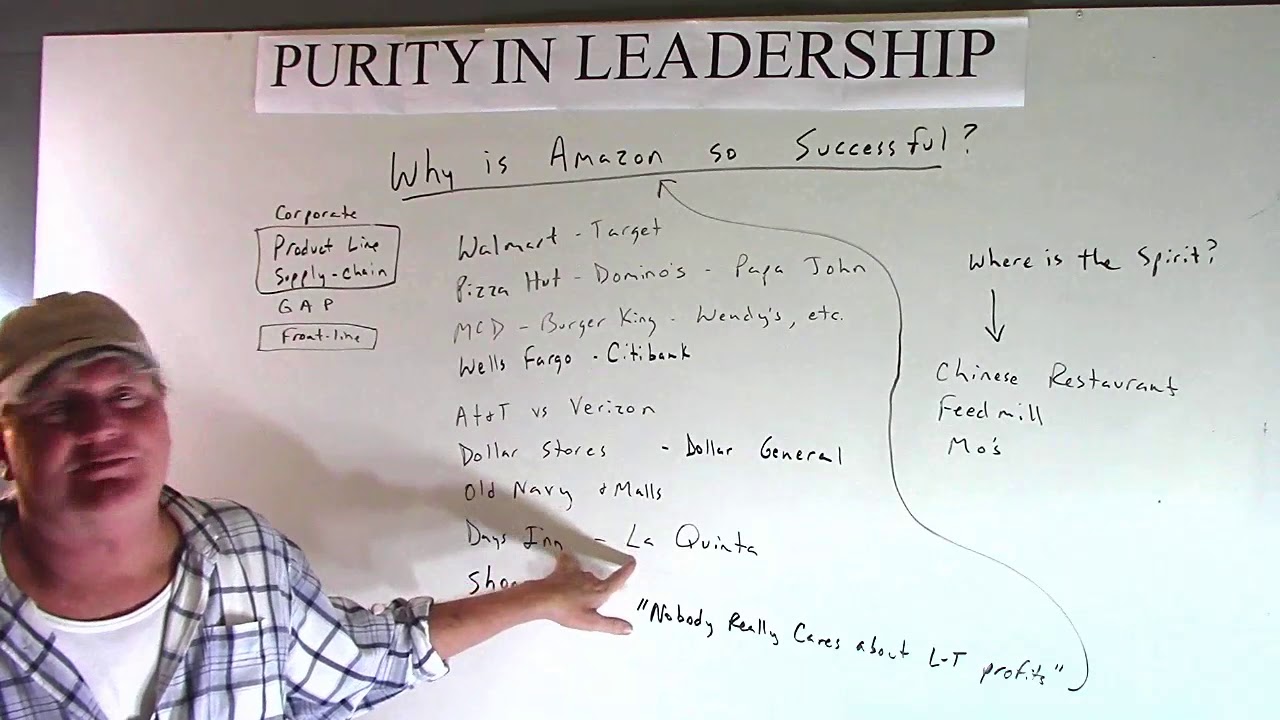 PURITY IN LEADERSHIP
Why is Amazon so Successful?
Corporate
Product Line
Supply-chain
GAP
Front-line
Walmart - Target
Pizza Hut - Domino's - Papa John
MCD - Burger King - Wendy's, etc.
Wells Fargo - Citibank
AT&T vs Verizon
Dollar Stores - Dollar General
Old Navy & Malls
Days Inn - La Quinta
"Nobody Really Cares about L-T profits"
Where is the Spirit?
Chinese Restaurant
Feedmill
Mo's